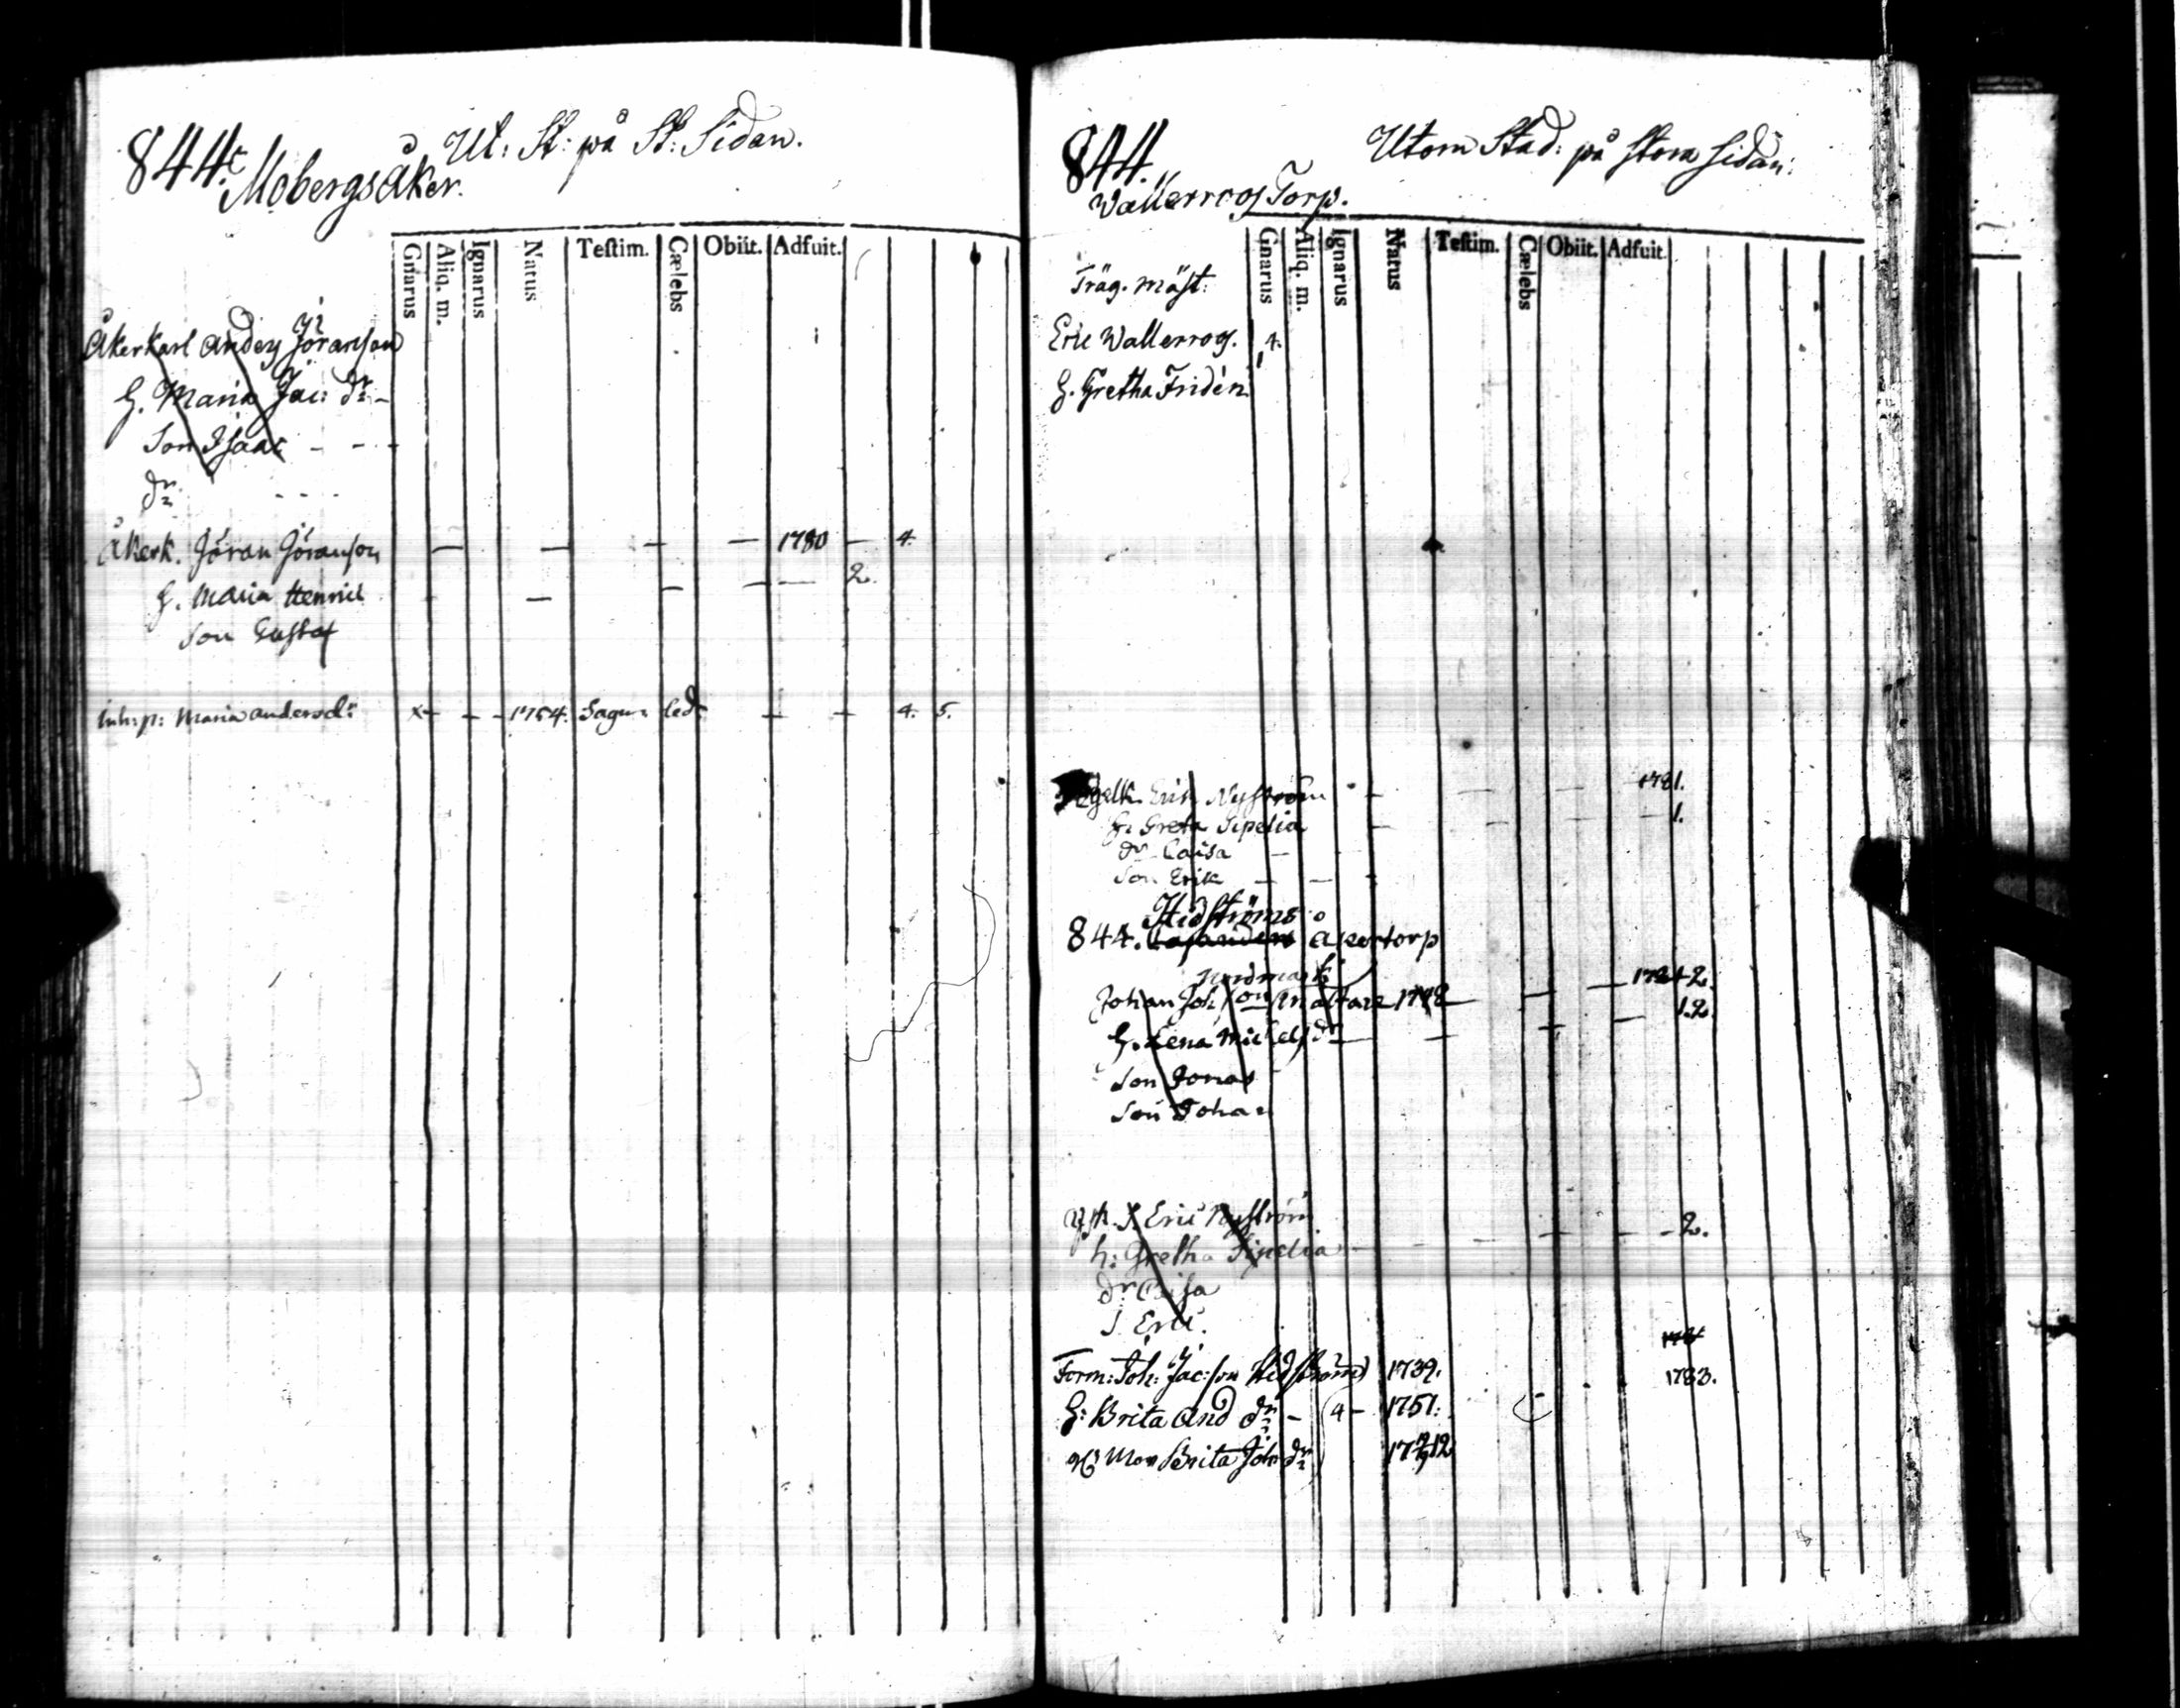 844.c Ut: St: på St: Sidan.
Mobergsåker.
Gnarus Aliq. m. Ignarus Natus Teſtim. Cælebs Obiit. Adfuit.
Åkerkarl Anders Jöranson
H. Maria Jac: dr -
Son Isaac - - -
dr - - - -
Åkerk. Jöran Jöranson — — — — 1780 — 4.
H. Maria Henric — — — — 2.
Son Gustaf
Inh:p: Maria andersd:r x - - - 1754. Sagu: led. - - 4. 5.
844. Utom Stad: på Stora sidan:
Wallerroos Torp.
Gnarus Aliq. m. Ignarus Natus Teſtim. Cælebs Obiit. Adfuit.
Träg. mäst:
Eric Wallerroos. 4.
H. Gretha Fridén
Erik Nyström - - - - 1781.
H. Greta Sipelia - - - - 1.
dr Caisa -
Son Erik - -
Hidströms
844. åkertorp
Johan Joh:son - - 2.
H. Lena Michelsdr - - - - 1.2.
Son Jonas
Son Johan
Eric Nyström
h: Gretha Sipelia - - - - - - 2.
dr Caisa
S. Eric.
Form: Joh: Jac:son Hidström 1739. 1783.
H: Brita And dr - 4 - 1751:
Mor Brita Joh dr